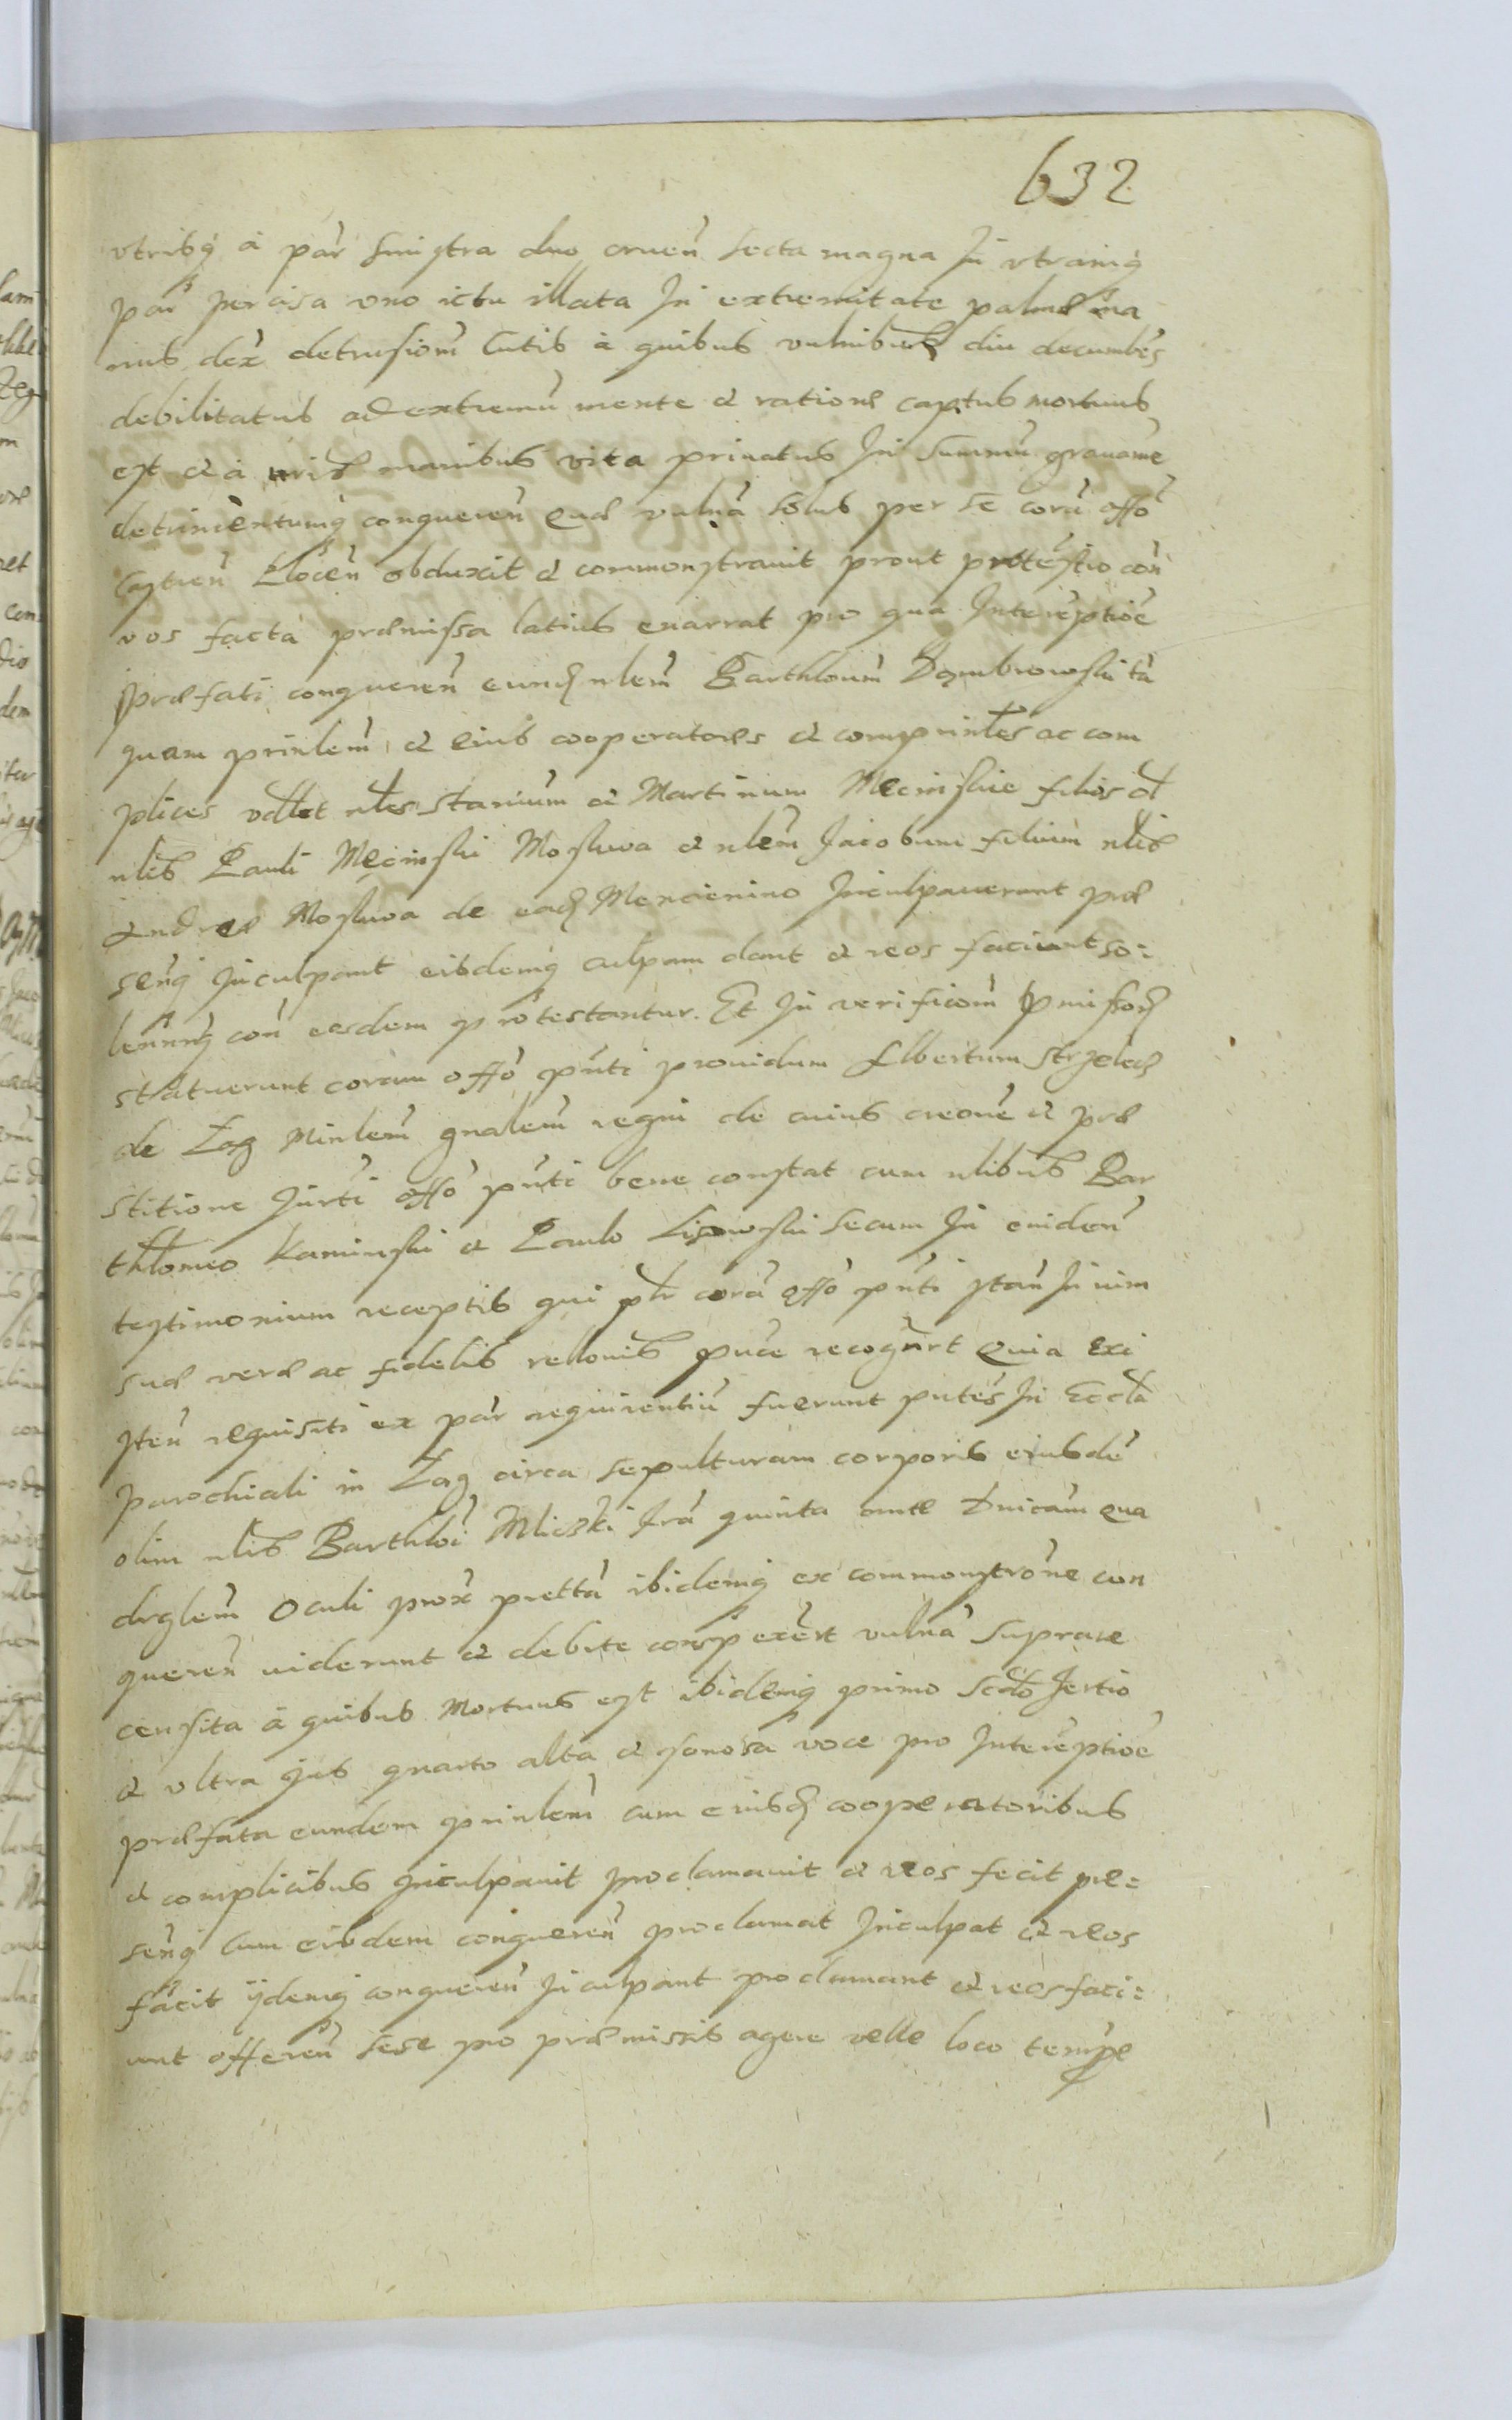 632
utribq̃ à par sinistra duo cruen secta magna In utramq̃
par percisa uno ictu illata In extremitate palmæ ma
nus dex detrusiom Cutis à quibus vulnibus diu decumbēs
debilitatus ad extremū mente & ratione captus mortuus
est & à manibus vita privatus In summū gravamē
detrimentumq̃ conqueren quæ vulnā solus per se corā offo
Castren Plocen obduxit & commonstravit prout protestio con
vos facta præmissa latius enarrat pro qua Interemptioē
præfati conqueren eund nlem Barthloum Dąmbrowski tā
quam prinlem & eius cooperatores & comprinles ac com
plices vdlct nles stanium & Martinum Mecinskie filios ol
nlis Pauli Męcinski Moskwa & nlem Jacobum filium nlis
Andreæ Moskwa de ead Mencienino Inculpaverunt præ
senq̃ Inculpant eisdemq̃ culpam dant & reos faciunt so:
lennq̃ con eosdem protestantur. Et In verificom pmissor
statuerunt coram offo pnti providum Albertum strzelecz
de Zag Minlem gnalem regni de cuius creone & præ
stitione Jurti offo pnti bene constat cum nlibus Bar
thlomeo Kaminski & Paulo Lisowski secum In eviden
testimonium receptis qui plr corā offo pnti stan In vim
suæ veræ ac fidelis rellonis puce recognrt Quia Exi
sten requisiti ex par requirentiū fuerunt pntes In Eccla
parochiali in Zag circa sepulturam corporis eiusdē
olim nlis Barthloi Mliczki frā quinta ante Dnicam qua
dragslem Oculi prox prettā ibidemq̃ ex commonstrone con
queren viderunt & debite conspexērt vulnā suprare
censita à quibus Mortuus est ibidemq̃ primo scdo Tertio
& ultra Jus quarto alta & sonora voce pro Interemptioē
præfata eundem prinlem cum eiusd cooperatoribus
& complicibus Inculpavit proclamavit & reos fecit præ:
senq̃ cum eisdem conqueren proclamat Inculpat & reos
facit ijdemq̃ conqueren Inculpant proclamant & reos faci:
unt offeren sese pro præmissis agere velle loco tempe